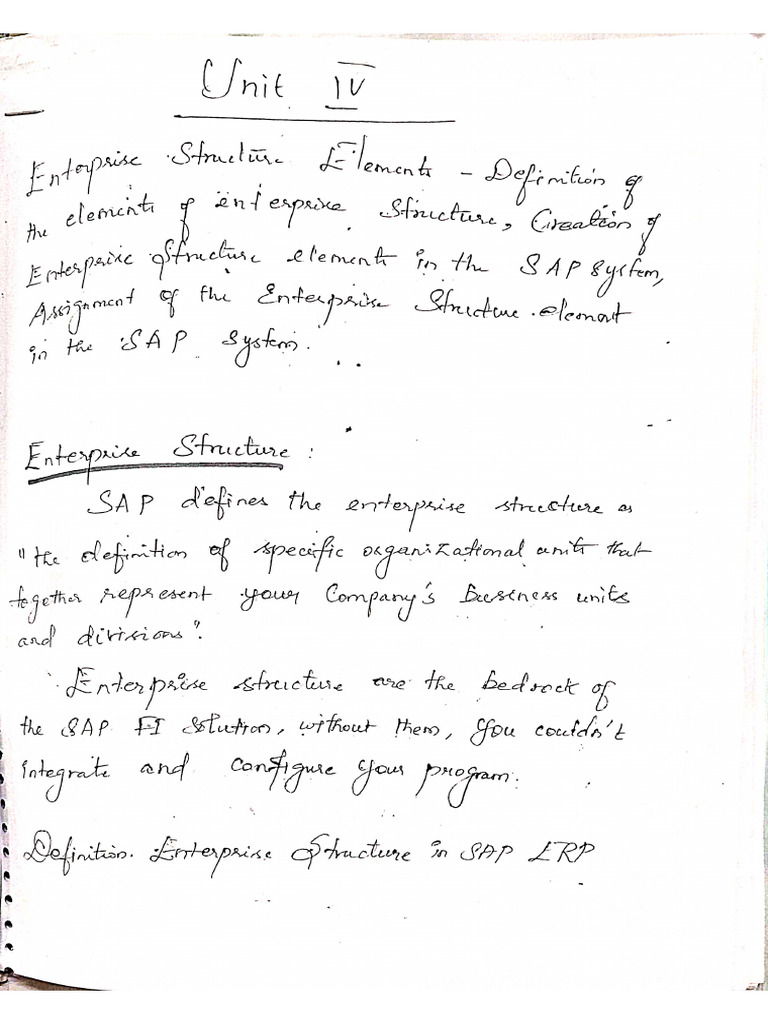 Unit IV
Enterprise Structure Elements - Definition of
the elements of enterprise Structure, Creation of
Enterprise Structure elements in the SAP System,
Assignment of the Enterprise Structure element
in the SAP System.
Enterprise Structure :
SAP defines the enterprise structure as
"the definition of specific organizational units that
together represent your Company's business units
and divisions".
Enterprise structure are the bedrock of
the SAP FI Solution, without them, you couldn't
integrate and configure your program.
Definition. Enterprise Structure in SAP ERP